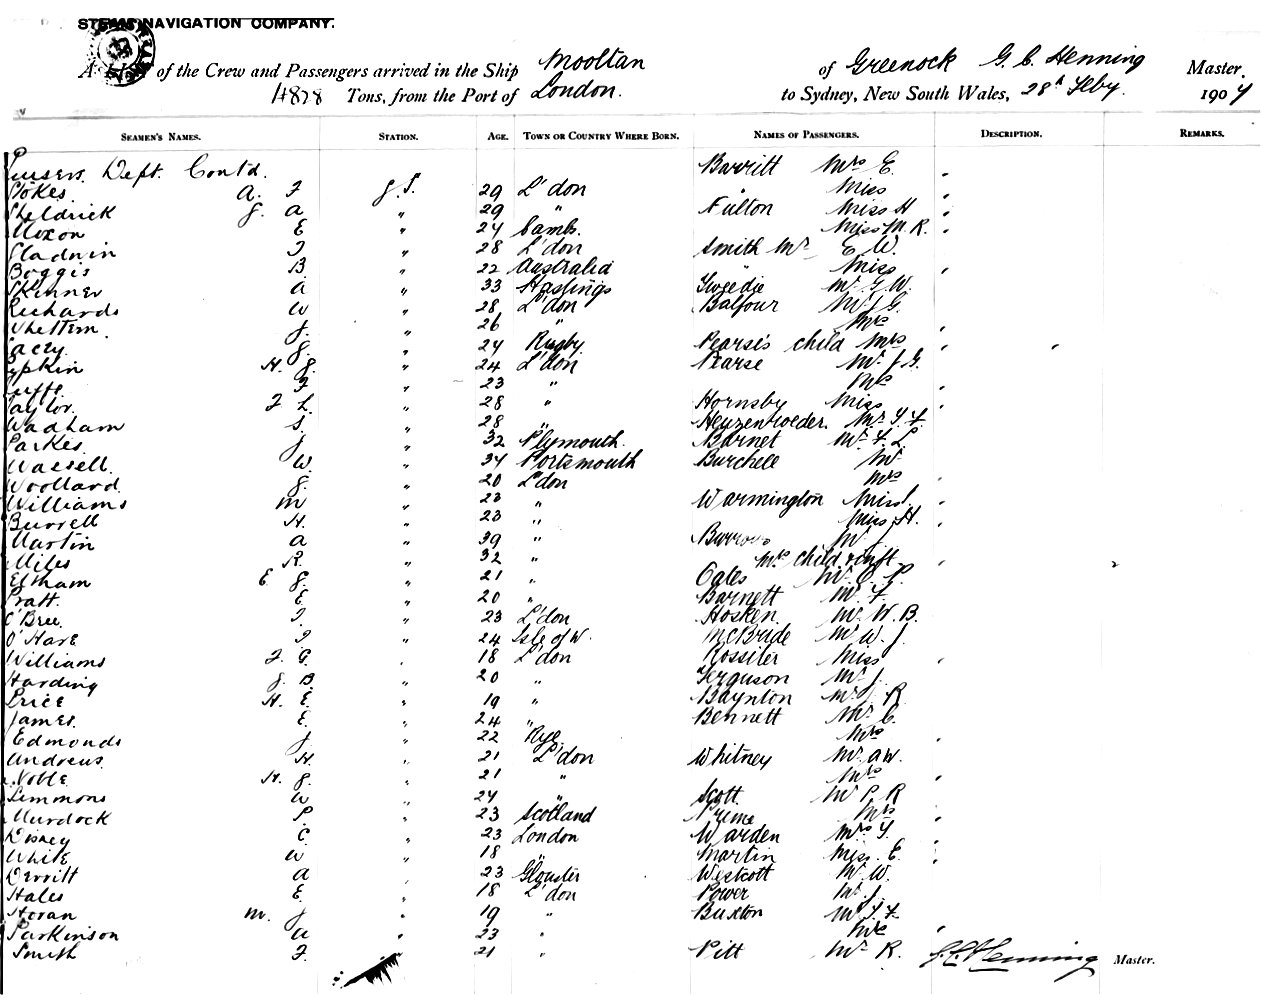 STEAM NAVIGATION COMPANY.
A List of the Crew and Passengers arrived in the Ship Mooltan of Greenock G. C. Henning Master,
4828 Tons, from the Port of London. to Sydney, New South Wales, 28th Feby. 1907
SEAMEN'S NAMES. STATION. AGE. TOWN OR COUNTRY WHERE BORN. NAMES OF PASSENGERS. DESCRIPTION. REMARKS.
Pursers Dept. Contd. Barritt Mrs E.
Stokes. A. F. G.S. 29 L'don Miss
Sheldrick G. A " 29 " Fulton Miss H
Moxon E " 24 Camb. Miss M. R.
Gladwin F " 28 L'don Smith Mr E. W.
Boggis B. " 22 Australia " Miss
Skinner A " 33 Hastings Tweedie Mr G. W.
Richards W " 28 L'don Balfour Mr J G.
Whettem J. " 26 " Mrs
Lacey. G. " 24 Rugby Pearse's child Mrs
Ipkin H. G. " 24 L'don Pearse Mr J. G.
F " 23 " Mrs
Taylor. F L. " 28 " Hornsby Miss
Wadham S. " 28 " Heuzenroeder. Mr
Parkes. J " 32 Plymouth. Barnet Mr F L.
Wassell. W. " 34 Portsmouth Burchell Mr
Woollard. G. " 20 L'don Mrs
Williams M " 23 " Warmington Miss
Burrell H. " 23 " Miss H.
Martin A " 39 " Burrows Mr J
Miles R. " 32 " Mrs child & inft
Eltham E G. " 21 " Oates Mr C. P.
Pratt. E " 20 " Barnett Mr F.
O'Bree. F. " 23 L'don Hosken Mr W. B.
O'Hare F " 24 Isle of W. McBride Mr W. J.
Williams F. G. " 18 L'don Rossiter Miss
Harding G. B. " 20 " Ferguson Mr J.
Price H. E. " 19 " Baynton Mr J. R.
James. E. " 24 " Bennett Mr C.
Edmonds J " 22 Rye. Mrs
Andrews. H. " 21 L'don Whitney Mr A W.
Noble H. G. " 21 " Mrs
Simmons W " 24 " Scott Mr P. R
Murdock P. " 23 Scotland Prime Mrs
Disney C. " 23 London Warden Mrs
White W " 18 " Martin Miss. E.
Derritt A " 23 Glouster Westcott Mr W.
Hales E. " 18 L'don Power Mr J.
Horan M. J " 19 " Buxton Mr
Parkinson A " 23 " Mrs
Smith F. " 21 " Pitt Mr R. G. C. Henning Master.